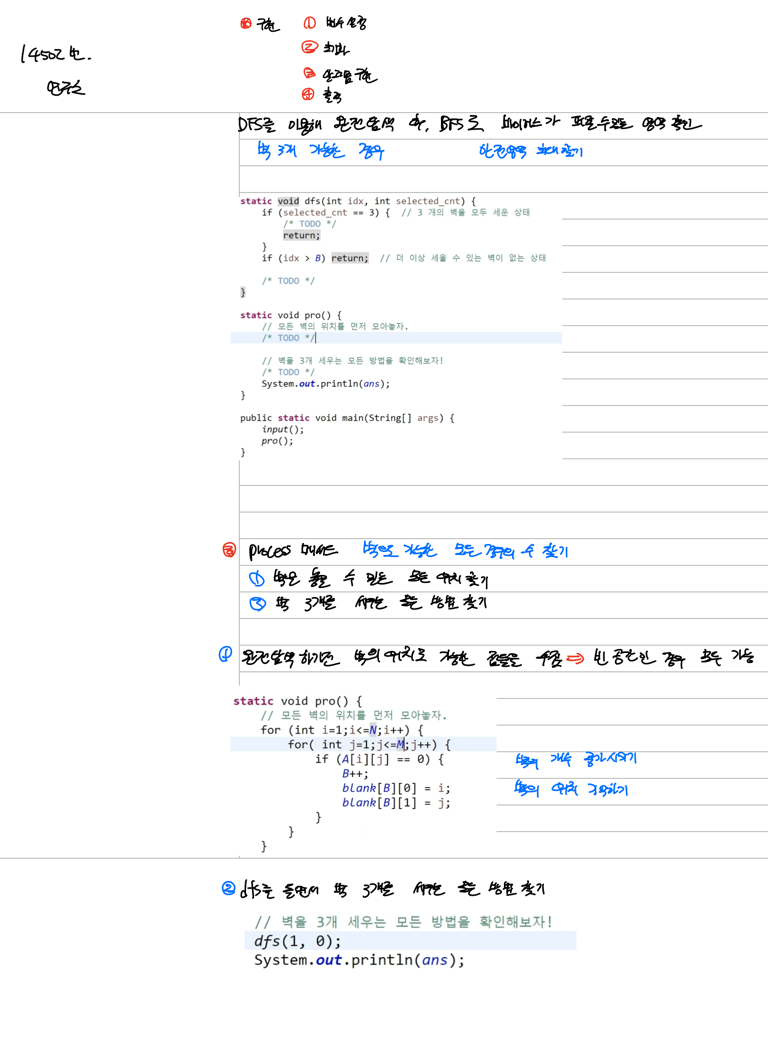 ⊛ 구현 ① 변수 설정
14502번. ②
연구소 ③ 구현
④ 출력
DFS를 이용해 완전탐색 후, BFS로 바이러스가 퍼질수있는 영역 확인
벽 3개 가능한 경우 안전영역 최대 찾기
static void dfs(int idx, int selected_cnt) {
if (selected_cnt == 3) { // 3 개의 벽을 모두 세운 상태
/* TODO */
return;
}
if (idx > B) return; // 더 이상 세울 수 있는 벽이 없는 상태
/* TODO */
}
static void pro() {
// 모든 벽의 위치를 먼저 모아놓자.
/* TODO */
// 벽을 3개 세우는 모든 방법을 확인해보자!
/* TODO */
System.out.println(ans);
}
public static void main(String[] args) {
input();
pro();
}
③ Process 메서드 벽으로 가능한 모든 경우의 수 찾기
① 벽은 놓을 수 있는 모든 위치 찾기
② 벽 3개를 세우는 모든 방법 찾기
① 완전탐색하기전 벽의 위치로 가능한 곳들을 수집 ⇒ 빈 공간인 경우 모두 가능
static void pro() {
// 모든 벽의 위치를 먼저 모아놓자.
for (int i=1;i<=N;i++) {
for( int j=1;j<=M;j++) {
if (A[i][j] == 0) {
B++; 벽의 개수 증가시키기
blank[B][0] = i;
blank[B][1] = j; 벽의 위치 기억하기
}
}
}
② dfs를 돌면서 벽 3개를 세우는 모든 방법 찾기
// 벽을 3개 세우는 모든 방법을 확인해보자!
dfs(1, 0);
System.out.println(ans);